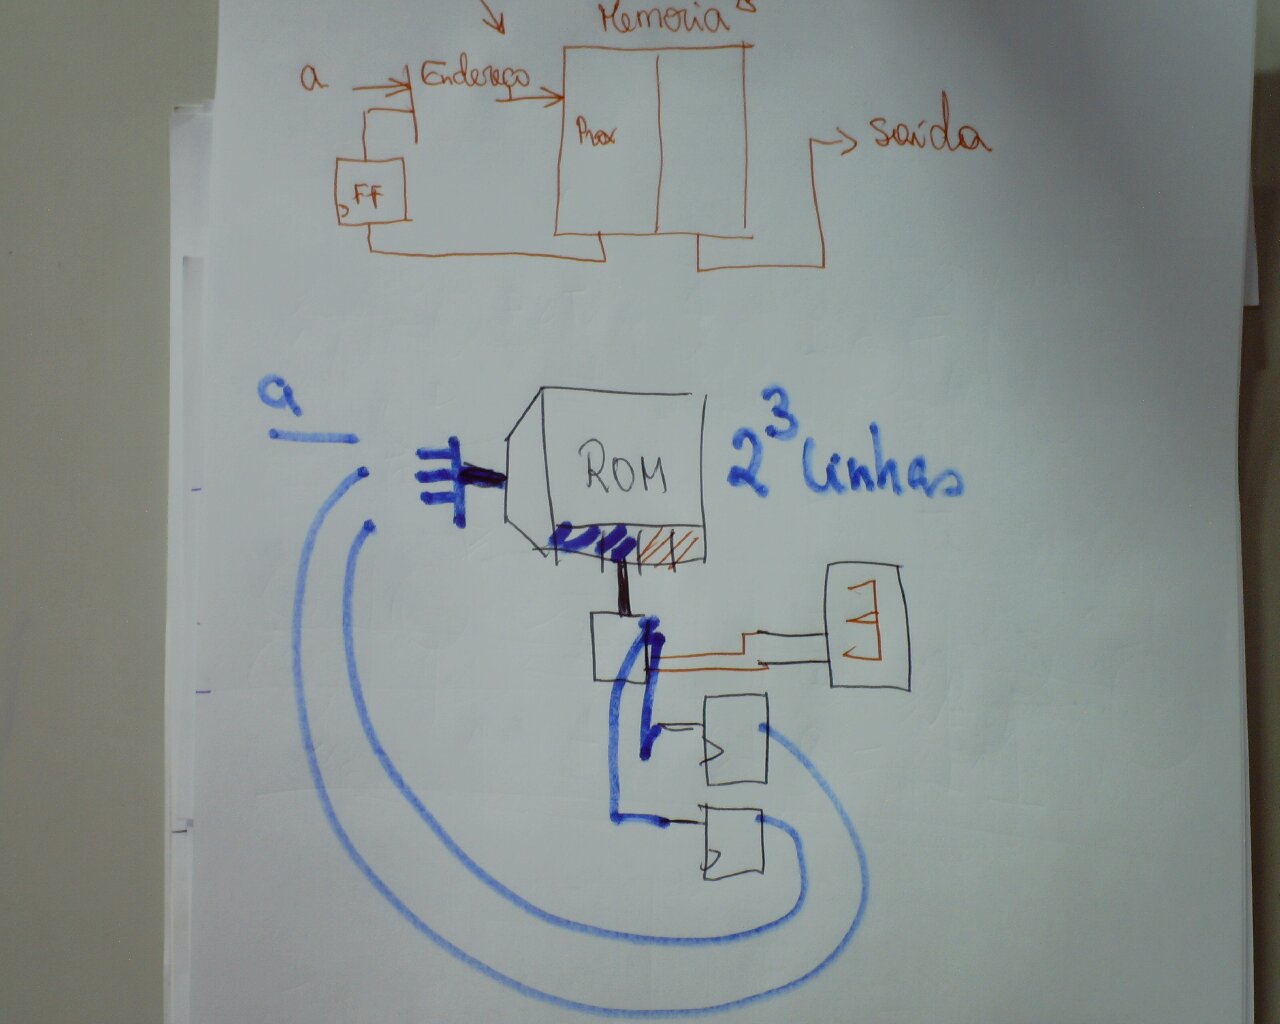 Memoria
a Endereço
Prox
saída
FF
a
ROM
2³ linhas